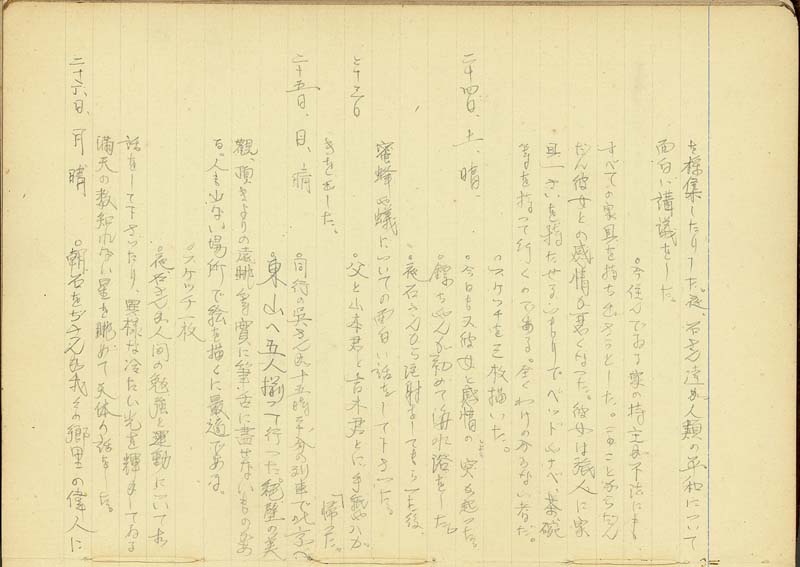 を採集したりした。夜、石老達が人類の平和について
面白い講議をした。
○今住んでゐる家の持主が不法にも
すべての家具を持ち出さうとした。このことからだん
だん彼女との感情が悪くなった。彼女は職人に家
具一さいを持たせるつもりでベッドやナベ、茶碗
等を持って行くのである。全くわけの分らない者だ。
○スケッチを三枚描いた。
二十四日、土、晴、
○今日も又彼女と感情の突が起った。
○錦ちゃんが初めて海水浴をした。
○夜石さんから注射をしてもらった後、
蜜蜂や蟻についての面白い話をして下さった。
○父と山本君と吉木君とに手紙やハガ
キを出した。
二十五日、日、晴
○同行の呉さんが十五時半分の列車で北京へ
帰った。
○東山へ五人揃って行った。絶壁の美
観、頂きよりの遠眺、事實に筆舌に盡せないものがあ
る。人も少ない場所で絵を描くに最適である。
○スケッチ一枚
○夜石さんが人間の勉強と運動についてお
話をして下さったり、異様な冷たい光を輝かしてゐる
満天の数知れない星を眺めて天体の話をした。
二十六、日、月 晴
○朝石をぢさんが我その郷里の偉人に